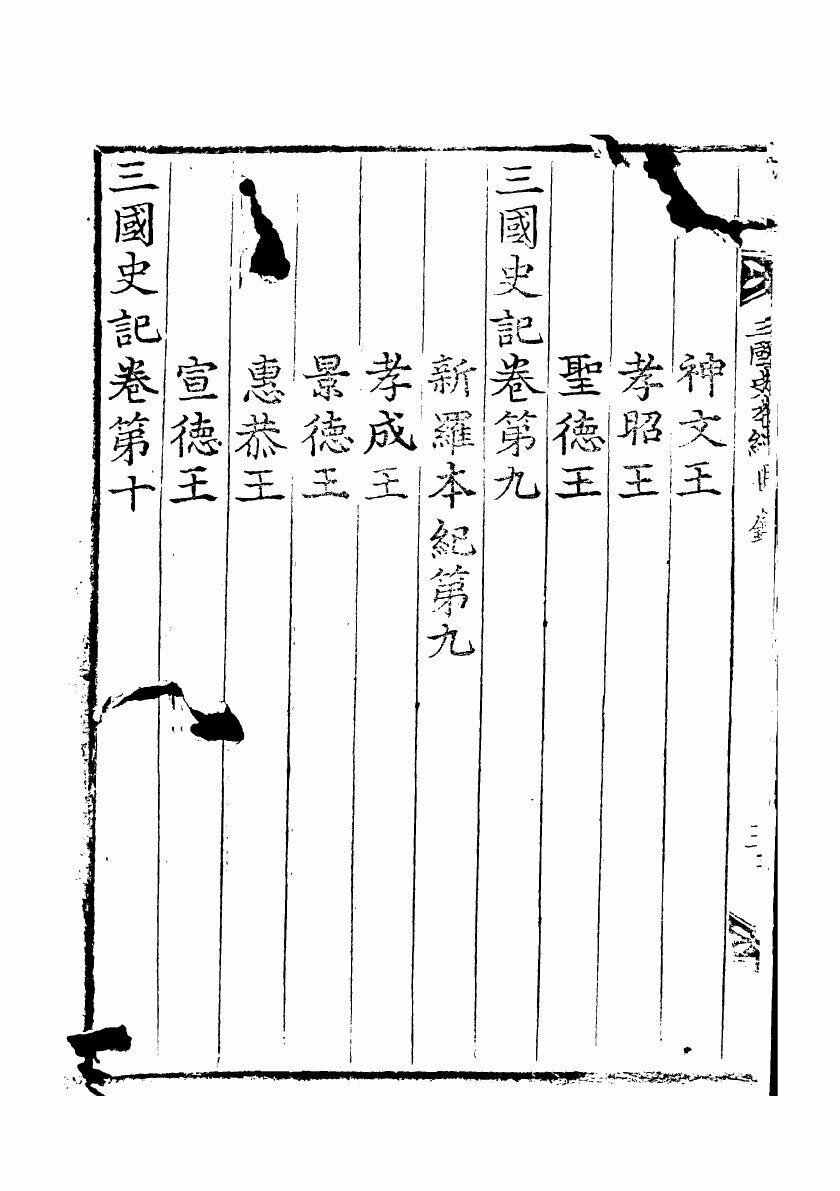 三國史本紀目錄
神文王
孝昭王
聖德王
三國史記卷第九
新羅本紀第九
孝成王
景德王
惠恭王
宣德王
三國史記卷第十